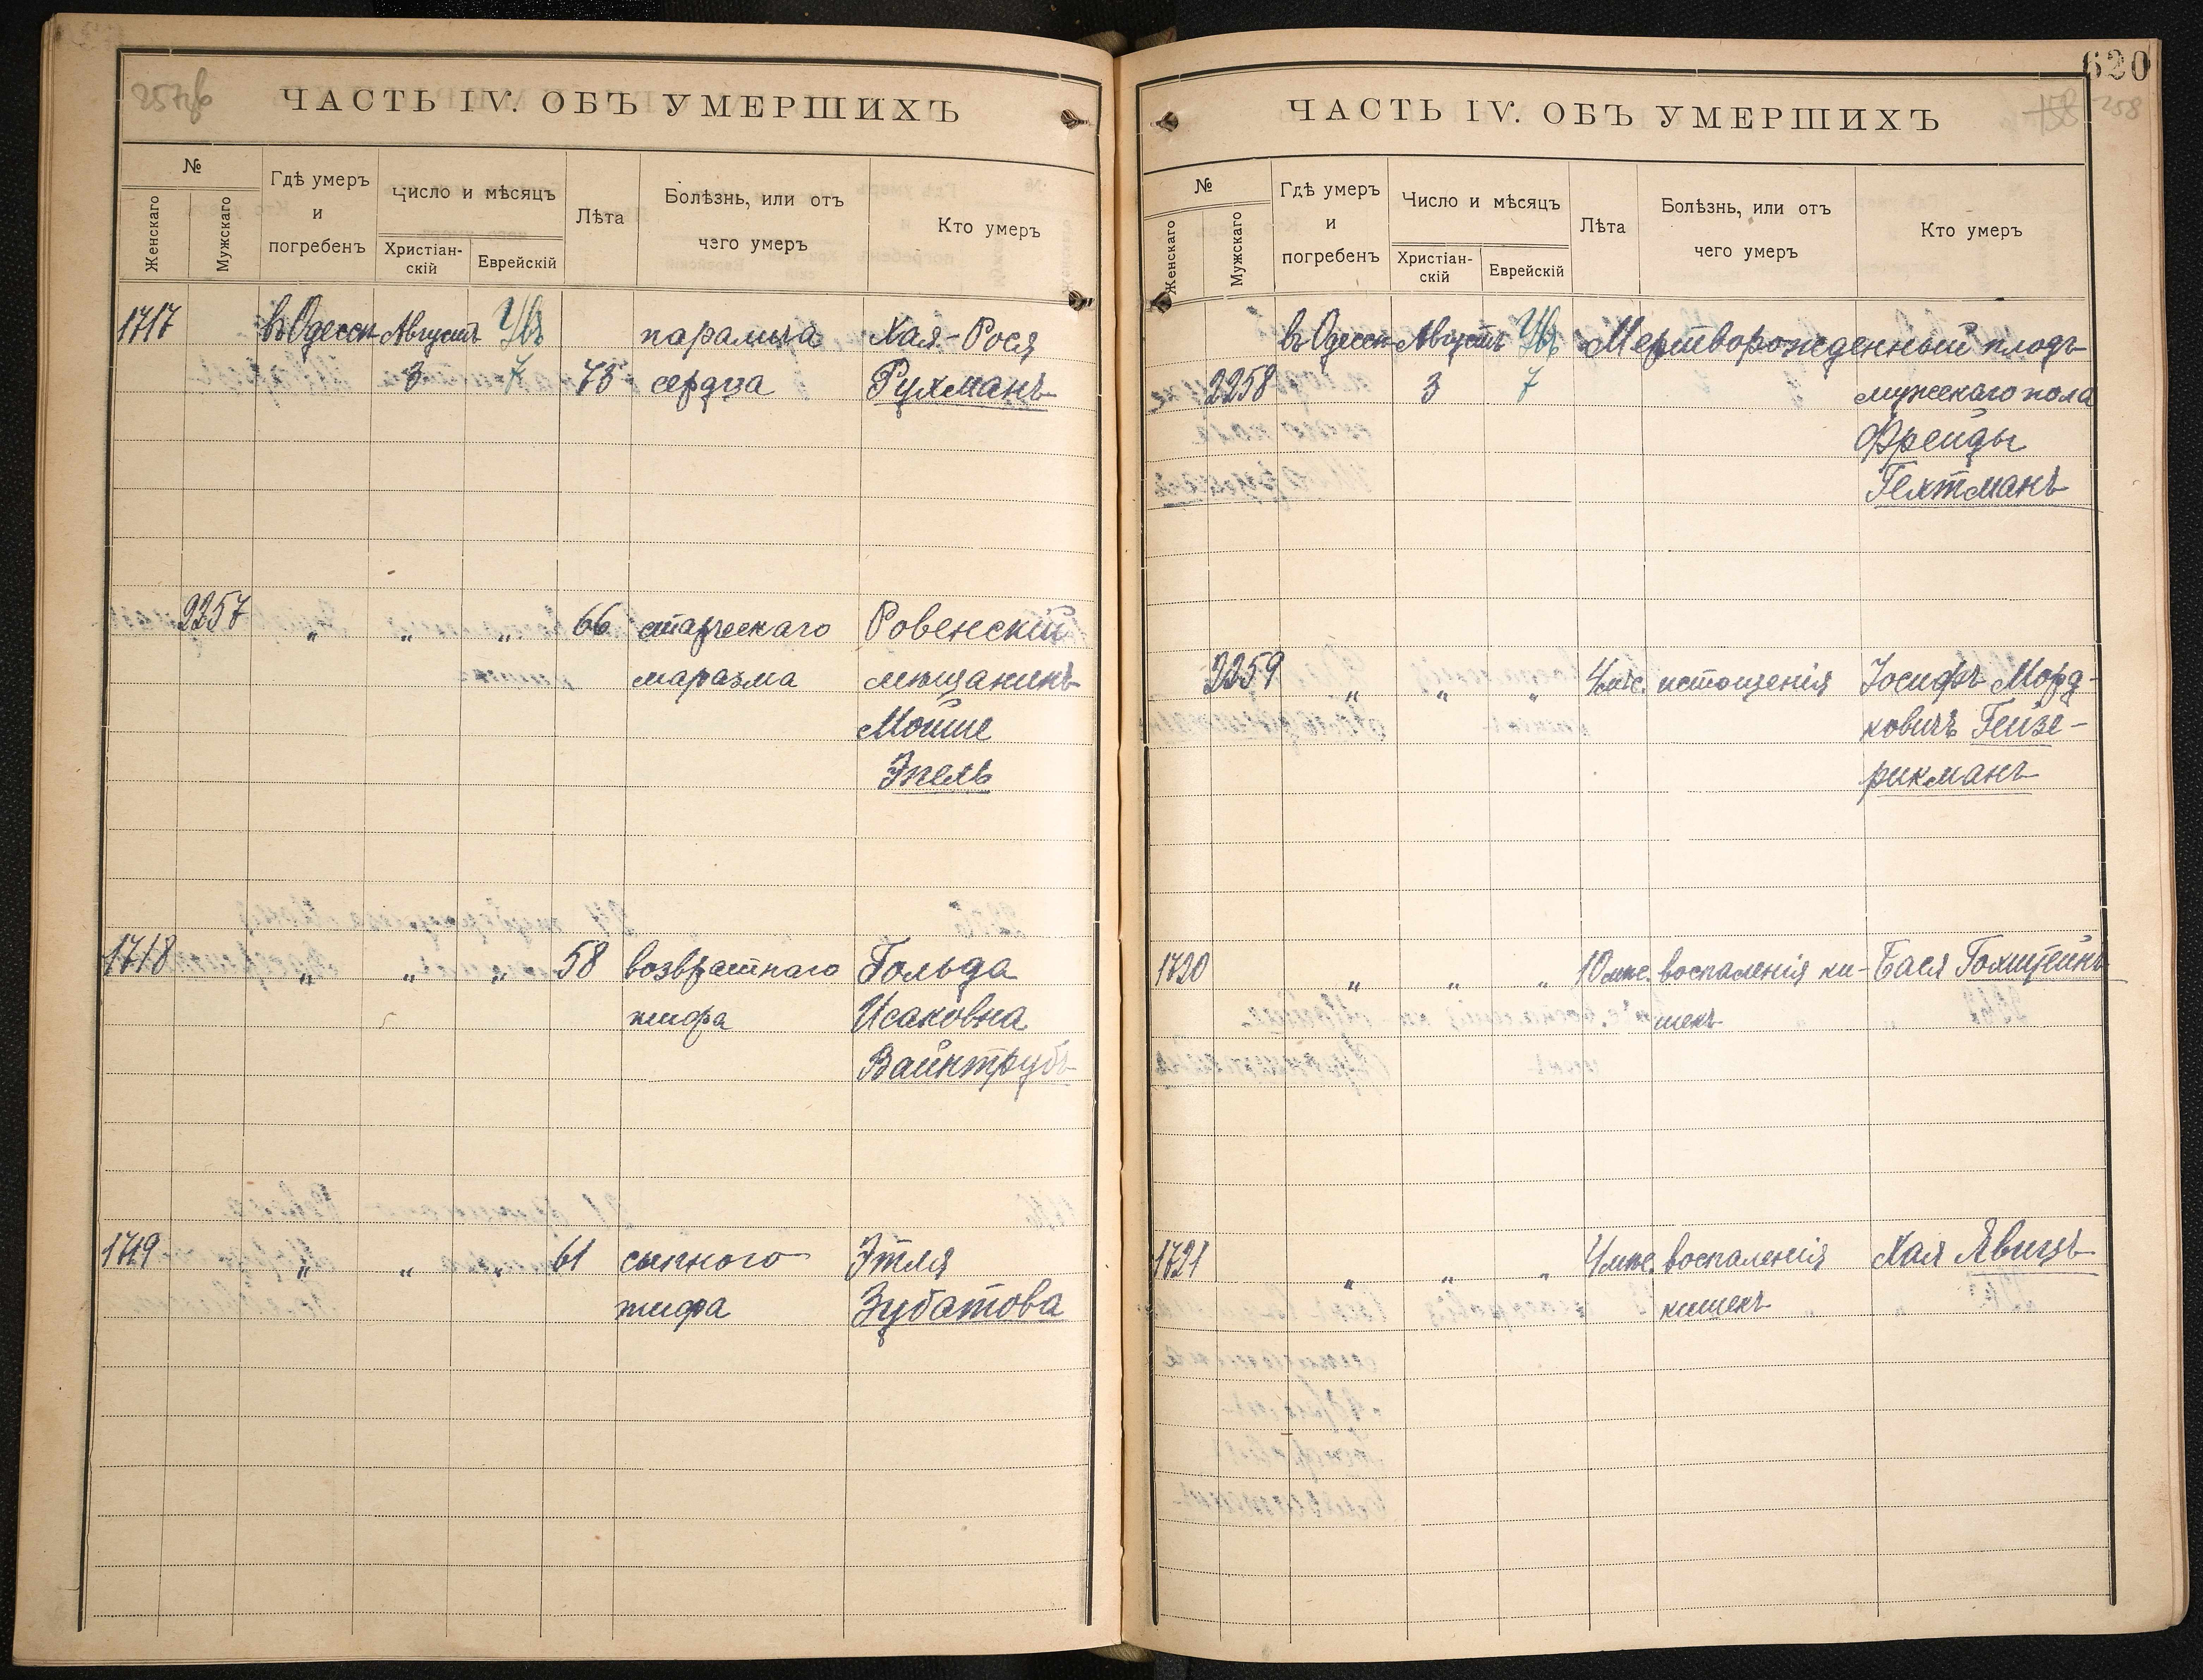 257об
ЧАСТЬ IV. ОБЪ УМЕРШИХЪ
№
Женскаго
Мужскаго
Гдѣ умеръ
и
погребенъ
Число и мѣсяцъ
Христіан-
скій
Еврейскій
Лѣта
Болѣзнь, или отъ
чего умеръ
Кто умеръ
1717 въ Одессѣ Августъ паралича Хая-Рося
3 7 75 сердца Рухманъ
2257 „ „ „ 66 старческаго Ровенскій
маразма мѣщанинъ
Мойше
Эпель
1718 „ „ „ 58 возвратнаго Гольда
тифа Исаковна
Вайнтрубъ
1719 „ „ „ 61 сыпного Этля
тифа Зубатова
620
158 258
ЧАСТЬ IV. ОБЪ УМЕРШИХЪ
№
Женскаго
Мужскаго
Гдѣ умеръ
и
погребенъ
Число и мѣсяцъ
Христіан-
скій
Еврейскій
Лѣта
Болѣзнь, или отъ
чего умеръ
Кто умеръ
въ Одессѣ Августъ Мертворожденный плодъ
2258 3 7 мужскаго пола
Фрейды
Гехтманъ
2259 „ „ „ 4 мѣс. истощенія Іосифъ Морд-
ковичъ Гейзе-
рикманъ
1720 „ „ „ 10 мѣс. воспаленія ки- Бася Гохштейнъ
шекъ
1721 „ „ „ 4 мѣс. воспаленія Хая Явицъ
кишекъ